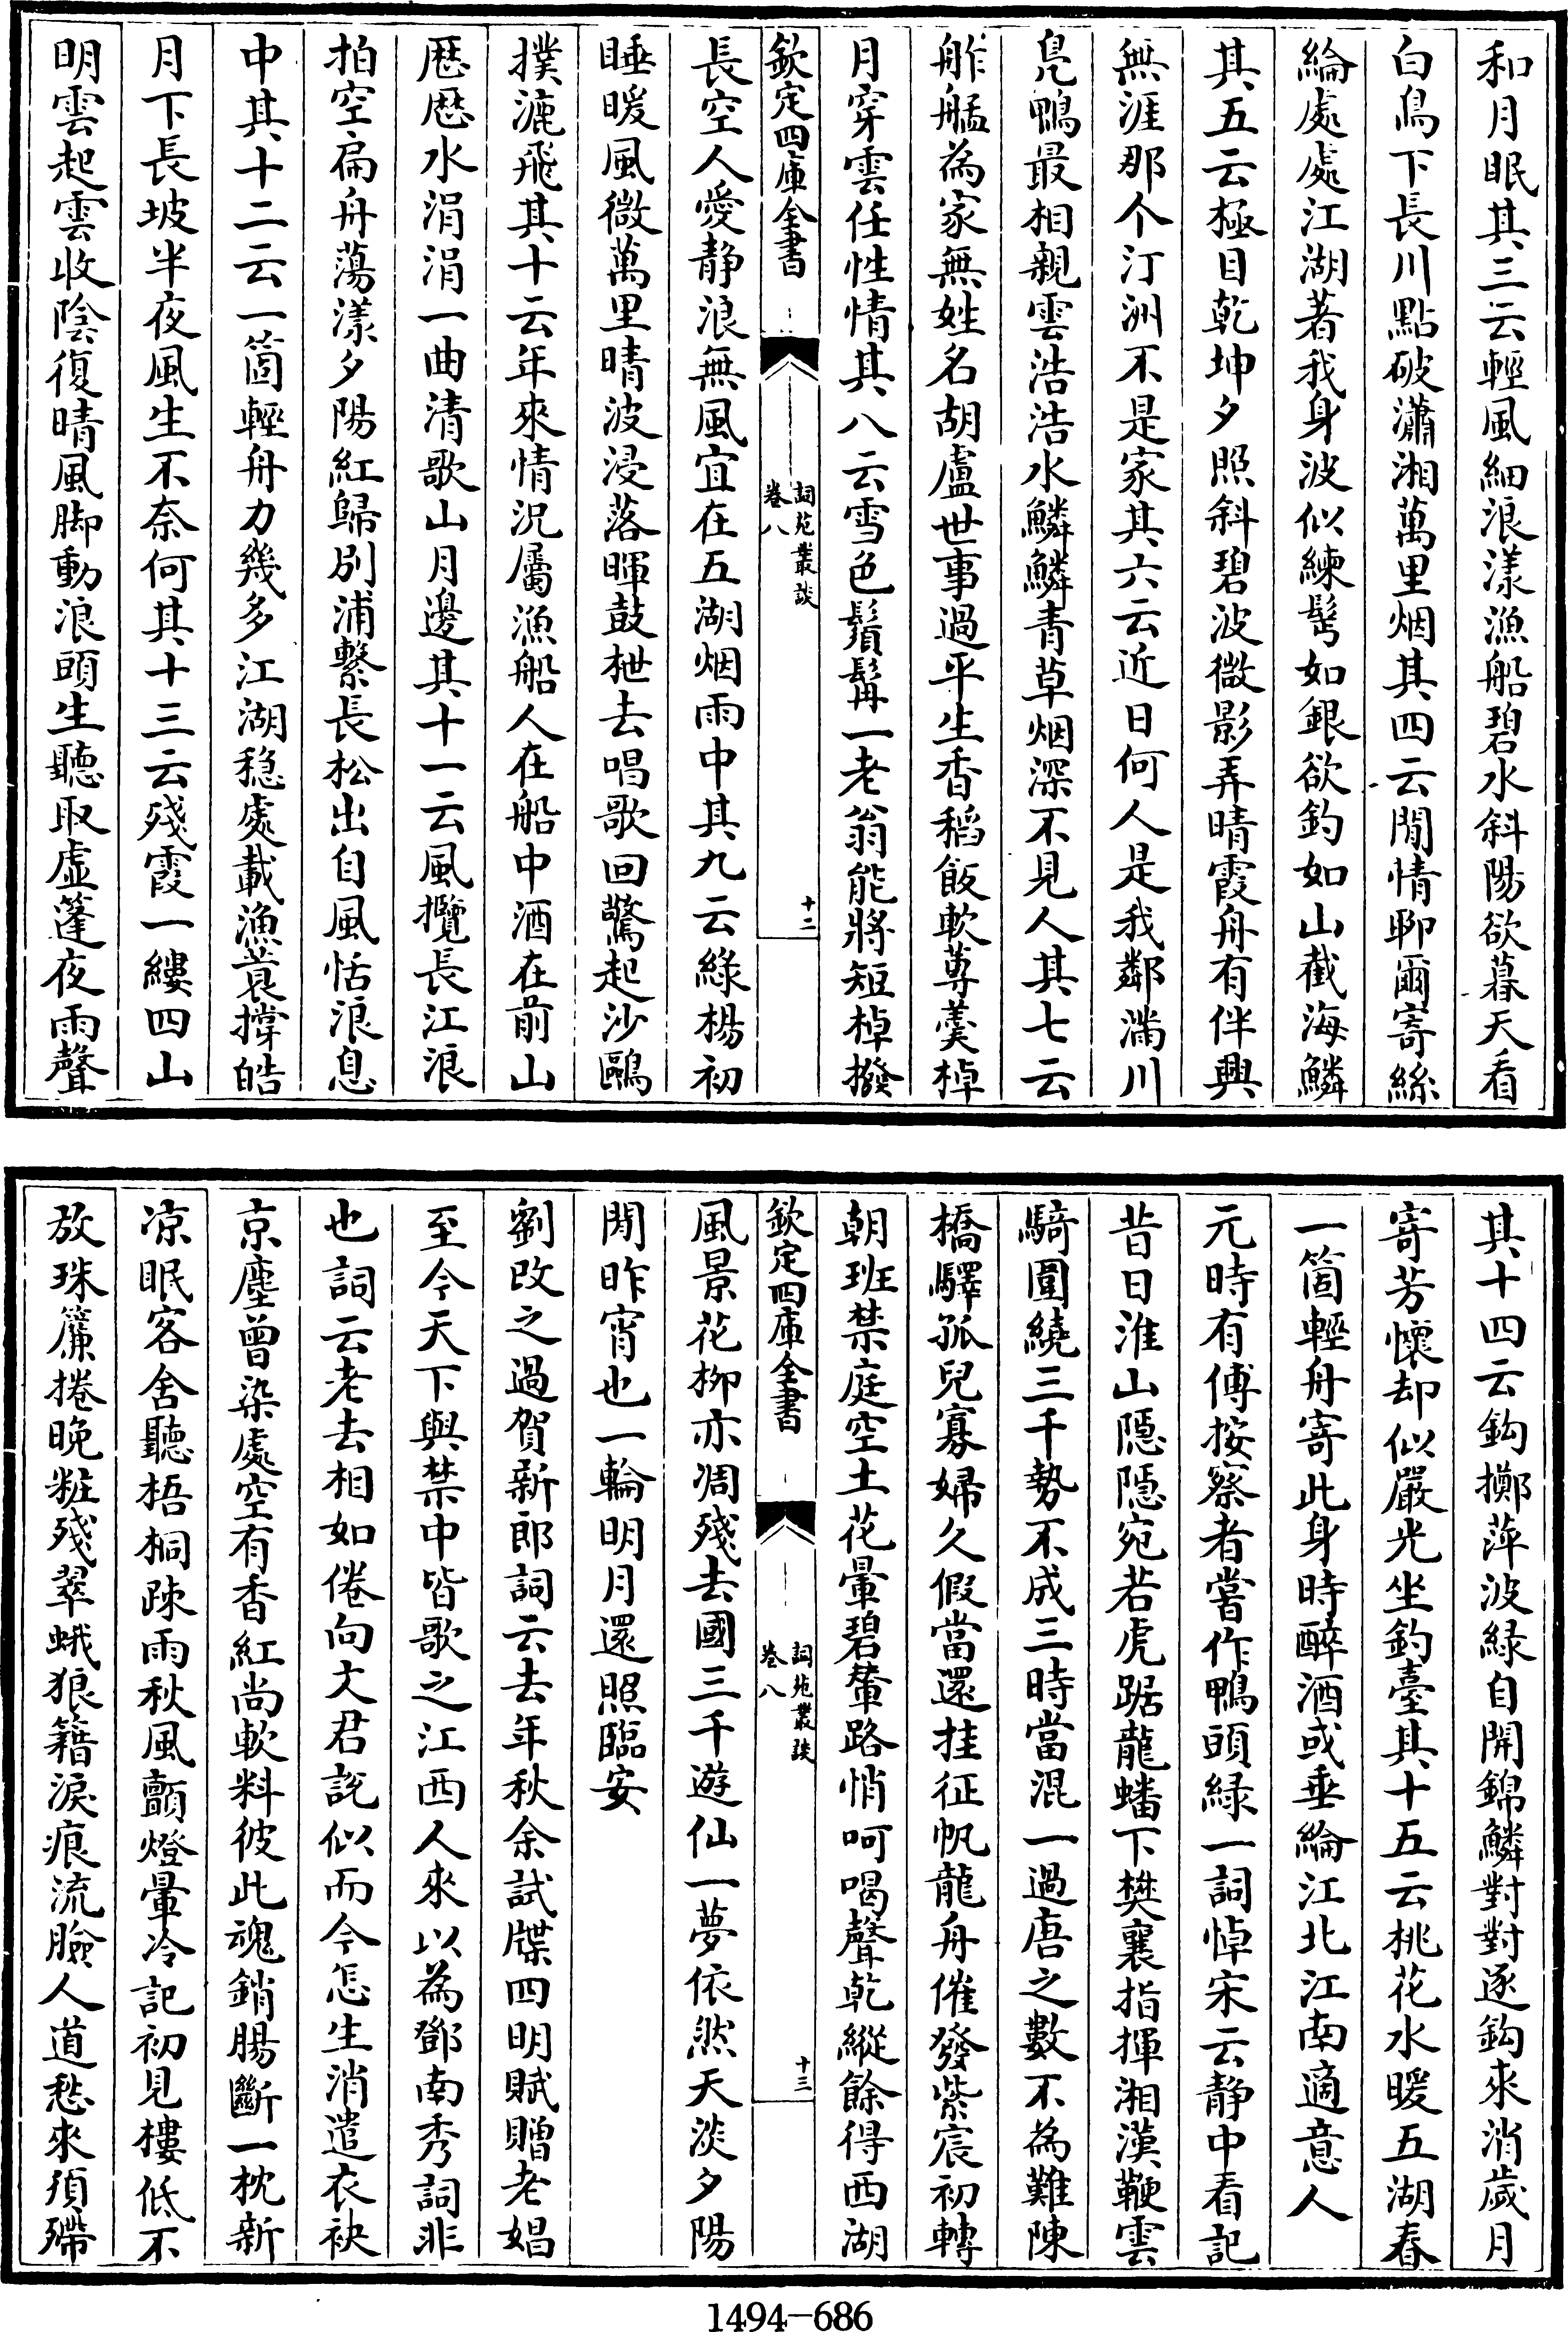 和月眠其三云輕風細浪漾漁船碧水斜陽欲暮天看
白鳥下長川點破瀟湘萬里烟其四云閒情聊爾寄絲
綸處處江湖著我身波似練髩如銀欲釣如山截海鱗
其五云極目乾坤夕照斜碧波微影弄晴霞舟有伴興
無涯那个汀洲不是家其六云近日何人是我鄰滿川
鳬鴨最相親雲浩浩水鱗鱗青草烟深不見人其七云
舴艋為家無姓名胡盧世事過平生香稻飯軟蓴羮棹
月穿雲任性情其八云雪色鬚髯一老翁能將短棹撥
欽定四庫全書
詞苑叢談
卷八
十二
長空人愛静浪無風宜在五湖烟雨中其九云綠楊初
睡暖風微萬里晴波浸落暉鼓枻去唱歌回驚起沙鷗
撲漉飛其十云年來情況屬漁船人在船中酒在前山
厯厯水涓涓一曲清歌山月邊其十一云風攬長江浪
拍空扁舟蕩漾夕陽紅歸別浦繫長松出自風恬浪息
中其十二云一箇輕舟力幾多江湖穏處載漁蓑撐皓
月下長坡半夜風生不奈何其十三云殘霞一縷四山
明雲起雲收陰復晴風脚動浪頭生聽取虛篷夜雨聲
其十四云鈎擲萍波緑自開錦鱗對對逐鈎來消歲月
寄芳懷却似嚴光坐釣臺其十五云桃花水暖五湖春
一箇輕舟寄此身時醉酒或垂綸江北江南適意人
元時有傅按察者嘗作鴨頭緑一詞悼宋云静中看記
昔日淮山隠隠宛若虎踞龍蟠下樊襄指揮湘漢鞭雲
騎圍繞三千勢不成三時當混一過唐之數不為難陳
橋驛孤兒寡婦久假當還挂征帆龍舟催發紫宸初轉
朝班禁庭空土花暈碧輦路悄呵喝聲乾縱餘得西湖
欽定四庫全書
詞苑叢談
卷八
十三
風景花柳亦凋殘去國三千遊仙一夢依然天淡夕陽
閒昨宵也一輪明月還照臨安
劉改之過賀新郎詞云去年秋余試牒四明賦贈老娼
至今天下與禁中皆歌之江西人來以為鄧南秀詞非
也詞云老去相如倦向文君說似而今怎生消遣衣袂
京塵曾染處空有香紅尚軟料彼此魂銷腸斷一枕新
凉眠客舍聽梧桐疎雨秋風顫燈暈冷記初見樓低不
放珠簾捲晚粧殘翠蛾狼籍淚痕流臉人道愁來須殢
1494-686